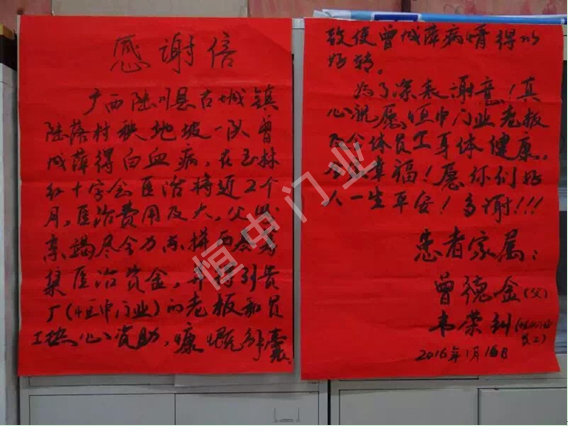 感谢信
广西陆川县古城镇
陆落村秧地坡一队曾
成萍得白血病，在玉林
红十字会医治将近2个
月，医治费用及大，父母
亲竭尽全力
集医治资金，并得到贵
厂(恒中门业)的老板和员
工热心资助，慷慨解囊，
致使曾成萍病情得以
好转。
为了深表谢意！真
心祝愿恒中门业老板
及全体员工身体健康，
幸福！愿你们好
人一生平安！多谢!!!
患者家属：
曾德金(父)
韦荣钊
员工)
2016年1月16日
恒中门业